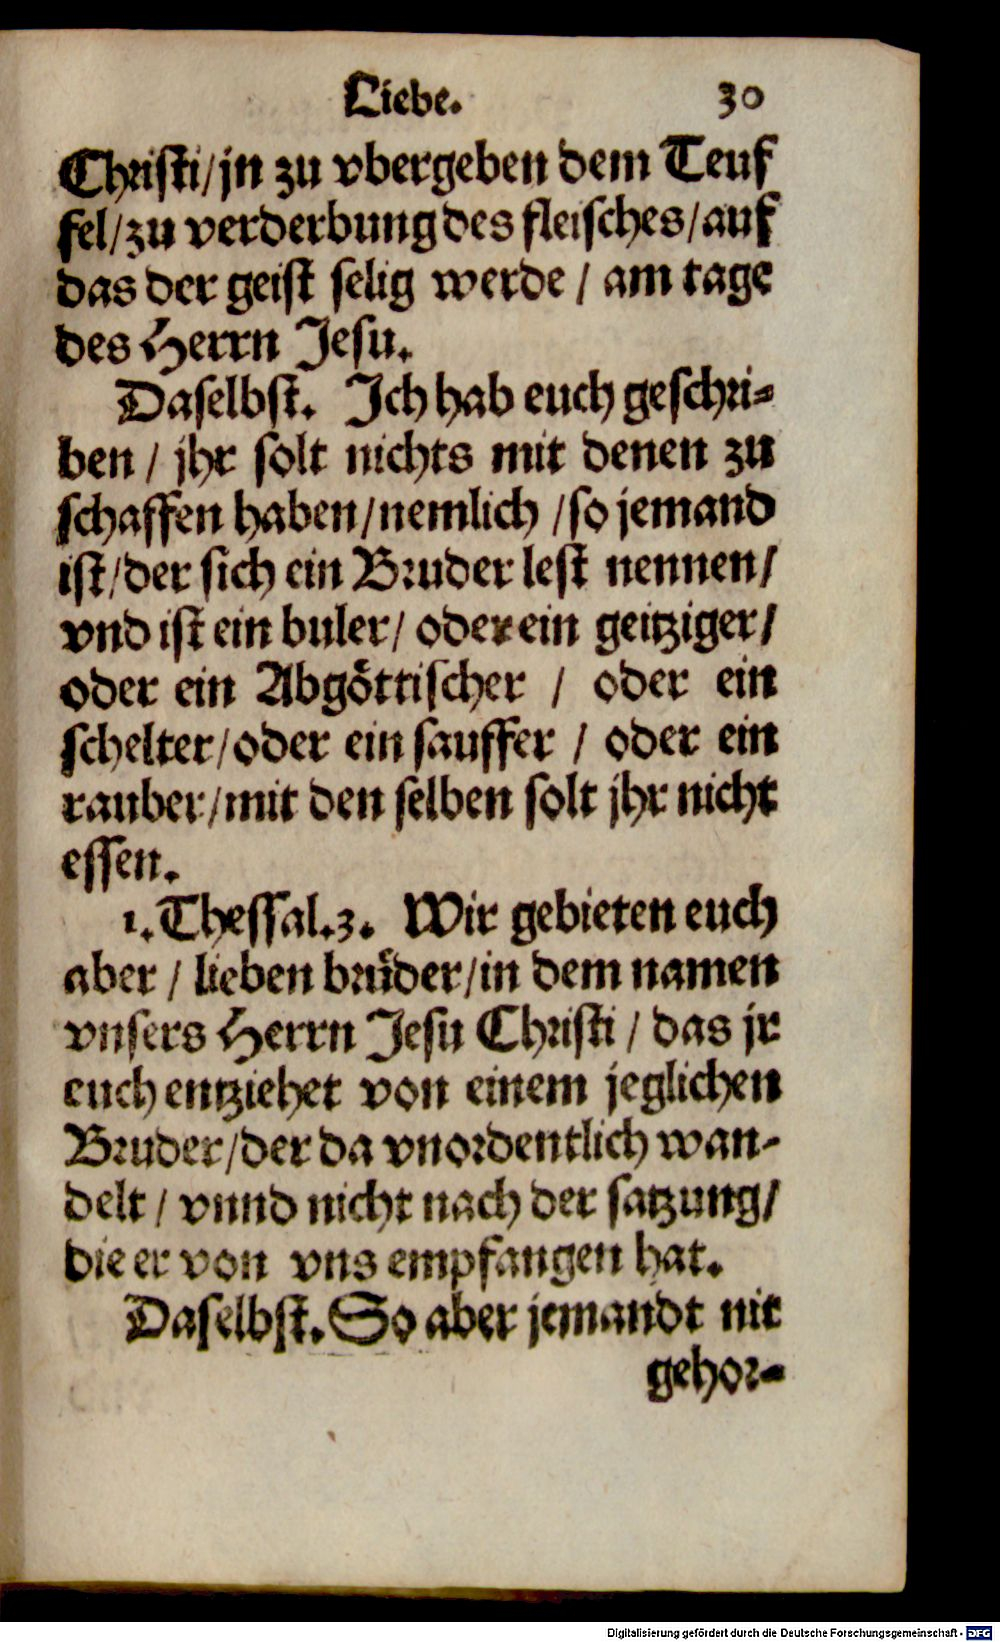 Liebe. 30
Christi/ jn zu vbergeben dem Teuf
fel/ zu verderbung des fleisches/ auf
das der geist selig werde / am tage
des Herrn Jesu.
Daselbst. Ich hab euch geschri-
ben / jhr solt nichts mit denen zu
schaffen haben/ nemlich / so jemand
ist/ der sich ein Bruder lest nennen/
vnd ist ein buler/ oder ein geitziger/
oder ein Abgöttischer / oder ein
schelter/ oder ein sauffer / oder ein
rauber/ mit den selben solt jhr nicht
essen.
1. Thessal. 3. Wir gebieten euch
aber / lieben brüder/ in dem namen
vnsers Herrn Jesu Christi / das jr
euch entziehet von einem jeglichen
Bruder/ der da vnordentlich wan-
delt / vnnd nicht nach der satzung/
die er von vns empfangen hat.
Daselbst. So aber jemandt nit
gehor-
Digitalisierung gefördert durch die Deutsche Forschungsgemeinschaft - DFG